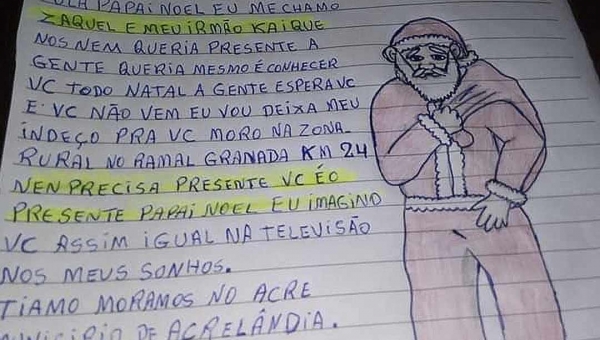 OLÁ PAPAI NOEL EU ME CHAMO
ZAQUEL E MEU IRMÃO KAIQUE
NOS NEM QUERIA PRESENTE A
GENTE QUERIA MESMO É CONHECER
VC TODO NATAL A GENTE ESPERA VC
E VC NÃO VEM EU VOU DEIXA MEU
INDEÇO PRA VC MORO NA ZONA
RURAL NO RAMAL GRANADA KM 24
NEN PRECISA PRESENTE VC ÉO
PRESENTE PAPAI NOEL EU IMAGINO
VC ASSIM IGUAL NA TELEVISÃO
NOS MEUS SONHOS.
TIAMO MORAMOS NO ACRE
MUNICIPIO DE ACRELÂNDIA.